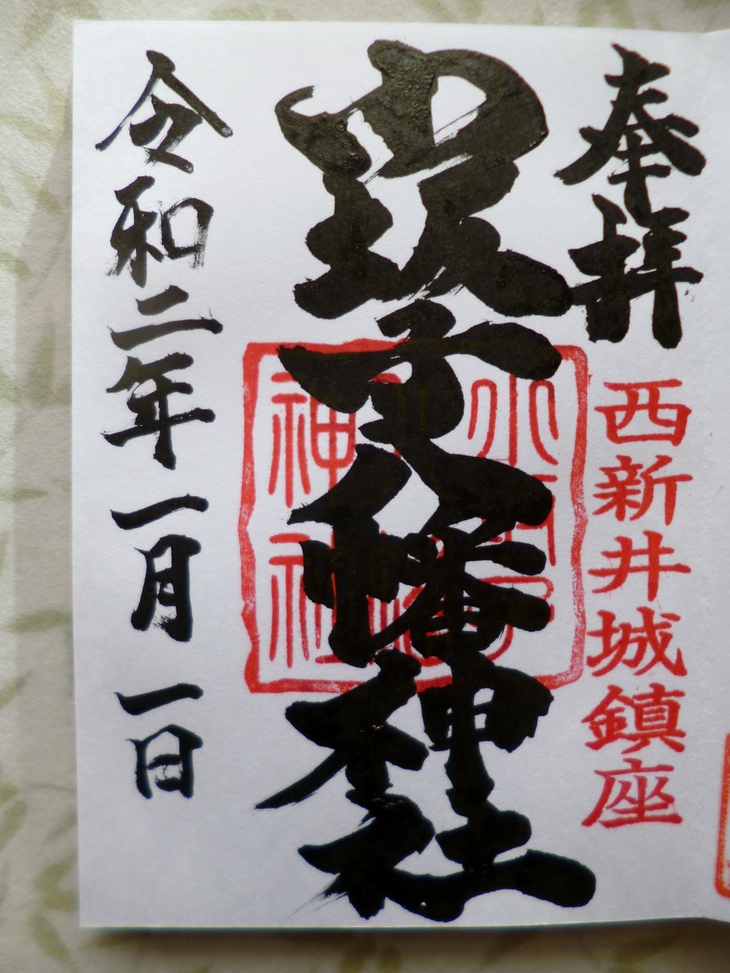 奉拝
西新井城鎮座
八幡神社
神社
令和二年一月一日